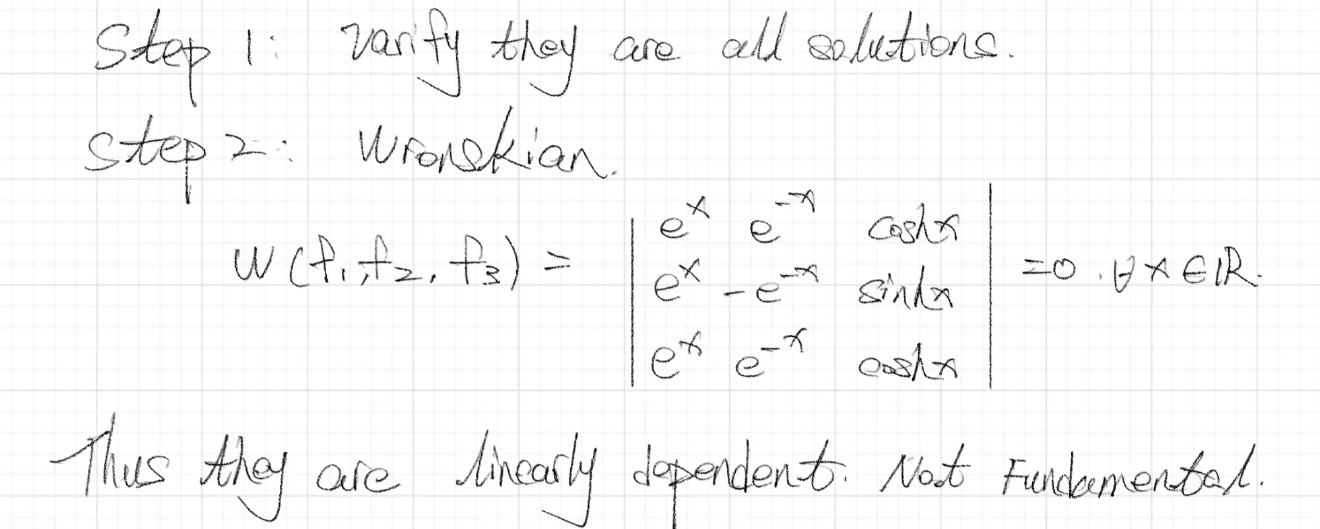 Step 1: varify they are all solutions.
Step 2: Wronskian.
W(f₁,f₂,f₃) = | eˣ e⁻ˣ coshx |
| eˣ -e⁻ˣ sinhx | =0. ∀x∈ℝ.
| eˣ e⁻ˣ coshx |
Thus they are linearly dependent. Not Fundamental.